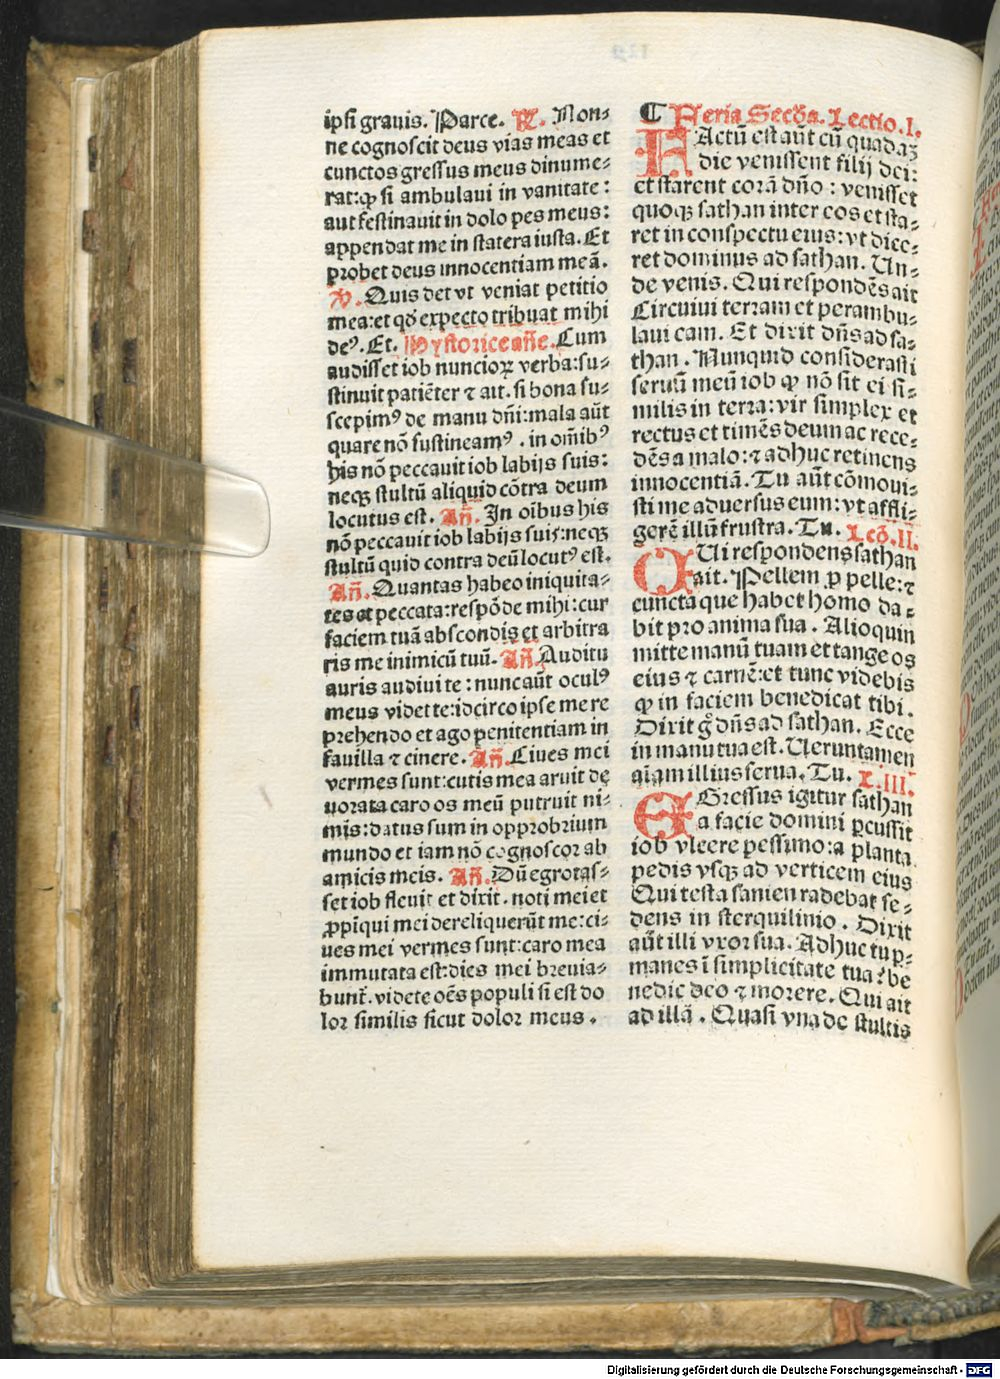 ipsi grauis. Parce. R̃. Non⸗
ne cognoscit deus vias meas et
cunctos gressus meus dinume⸗
rat:qꝫ si ambulaui in vanitate:
aut festinauit in dolo pes meus:
appendat me in statera iusta. Et
probet deus innocentiam meā.
V. Quis det vt veniat petitio
mea:et qđ expecto tribuat mihi
deꝰ. Et. Hystorice añe. Cum
audisset iob nuncioꝝ verba:su⸗
stinuit patiēter ⁊ ait. si bona su⸗
scepimꝰ de manu dñi:mala aūt
quare nō sustineamꝰ. in om̄ibꝰ
his nō peccauit iob labijs suis:
neqꝫ stultū aliquid cōtra deum
locutus est. Añ. In oībus his
nō peccauit iob labijs suis:neqꝫ
stultū quid contra deū locutꝰ est.
Añ. Quantas habeo iniquita⸗
tes et peccata:respōde mihi:cur
faciem tuā abscondis et arbitra
ris me inimicū tuū. Añ. Auditu
auris audiui te: nunc aūt oculꝰ
meus videt te:idcirco ipse me re
prehendo et ago penitentiam in
fauilla ⁊ cinere. Añ. Ciues mei
vermes sunt:cutis mea aruit de
uorata caro os meū putruit ni⸗
mis:datus sum in opprobrium
mundo et iam nō cognoscor ab
amicis meis. Añ. Dū egrotas⸗
set iob fleuit et dixit. noti mei et
ꝓpīqui mei dereliquerūt me:ci⸗
ues mei vermes sunt:caro mea
immutata est:dies mei breuia⸗
bunt̄. videte oēs populi si est do
lor similis sicut dolor meus.
¶ Feria Secōa. Lectio. I.
FActū est aūt cū quadaꝫ
die venissent filij dei:
et starent corā dño: venisset
quoqꝫ sathan inter eos et sta⸗
ret in conspectu eius:vt dice⸗
ret dominus ad sathan. Un⸗
de venis. Qui respondēs ait
Circuiui terram et perambu⸗
laui eam. Et dixit dñs ad sa⸗
than. Nunquid considerasti
seruū meū iob qꝫ nō sit ei si⸗
milis in terra:vir simplex et
rectus et timēs deum ac rece⸗
dēs a malo:⁊ adhuc retinens
innocentiā. Tu aūt cōmoui⸗
sti me aduersus eum:vt affli⸗
gerē illū frustra. Tu. Lcō. II.
QUi respondens sathan
ait. Pellem ꝓ pelle:⁊
cuncta que habet homo da⸗
bit pro anima sua. Alioquin
mitte manū tuam et tange os
eius ⁊ carnē:et tunc videbis
qꝫ in faciem benedicat tibi.
Dixit gͦ dñs ad sathan. Ecce
in manu tua est. Ueruntamen
aīam illius serua. Tu. L. III.
EGressus igitur sathan
a facie domini ꝑcussit
iob vlcere pessimo:a planta
pedis vsqꝫ ad verticem eius
Qui testa saniem radebat se⸗
dens in sterquilinio. Dixit
aūt illi vxor sua. Adhuc tu ꝑ⸗
manes ī simplicitate tua? be
nedic deo ⁊ morere. Qui ait
ad illā. Quasi vna de stultis
Digitalisierung gefördert durch die Deutsche Forschungsgemeinschaft - DFG